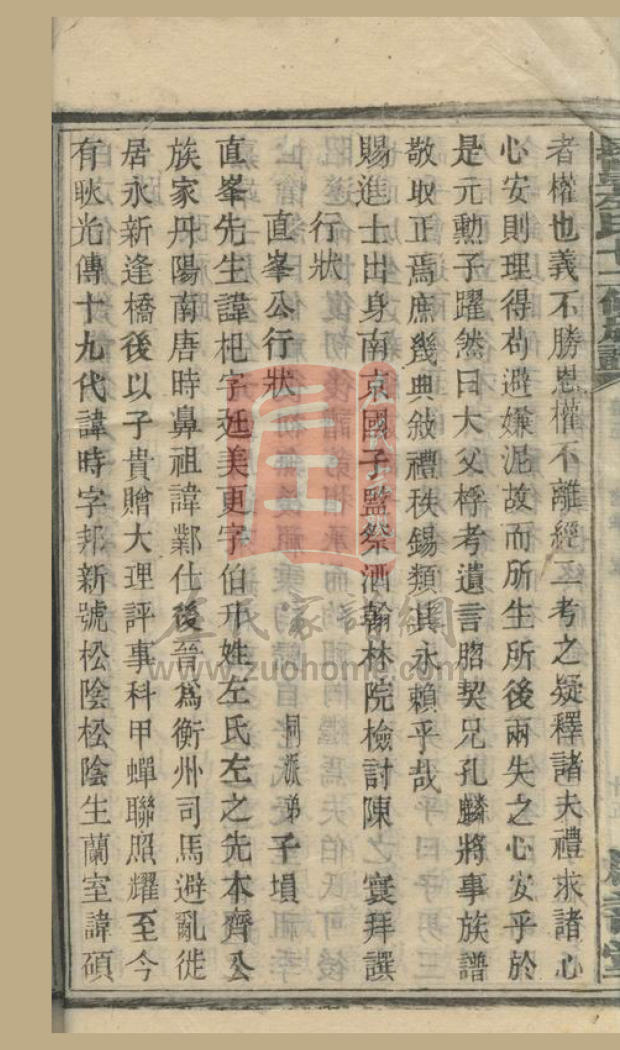 者權也義不勝恩權不離經二考之疑釋諸夫禮求諸心
心安則理得苟避嫌泥故而所生所後兩失之心安乎於
是元勳子躍然曰大父桴考遺言胎契兄孔麟將事族譜
敬取正焉庶幾典敍禮秩錫類其永賴乎哉
賜進士出身南京國子監祭酒翰林院檢討陳之寰拜譔
行狀
直峯公行狀 同派弟子塤
直峯先生諱杞字廷美更字伯升姓左氏左之先本齊公
族家丹陽南唐時鼻祖諱鄴仕後晉爲衡州司馬避亂徙
居永新逢橋後以子貴贈大理評事科甲蟬聯照耀至今
有耿光傳十九代諱時字邦新號松陰松陰生蘭室諱碩
左氏家譜網
www.zuohome.com